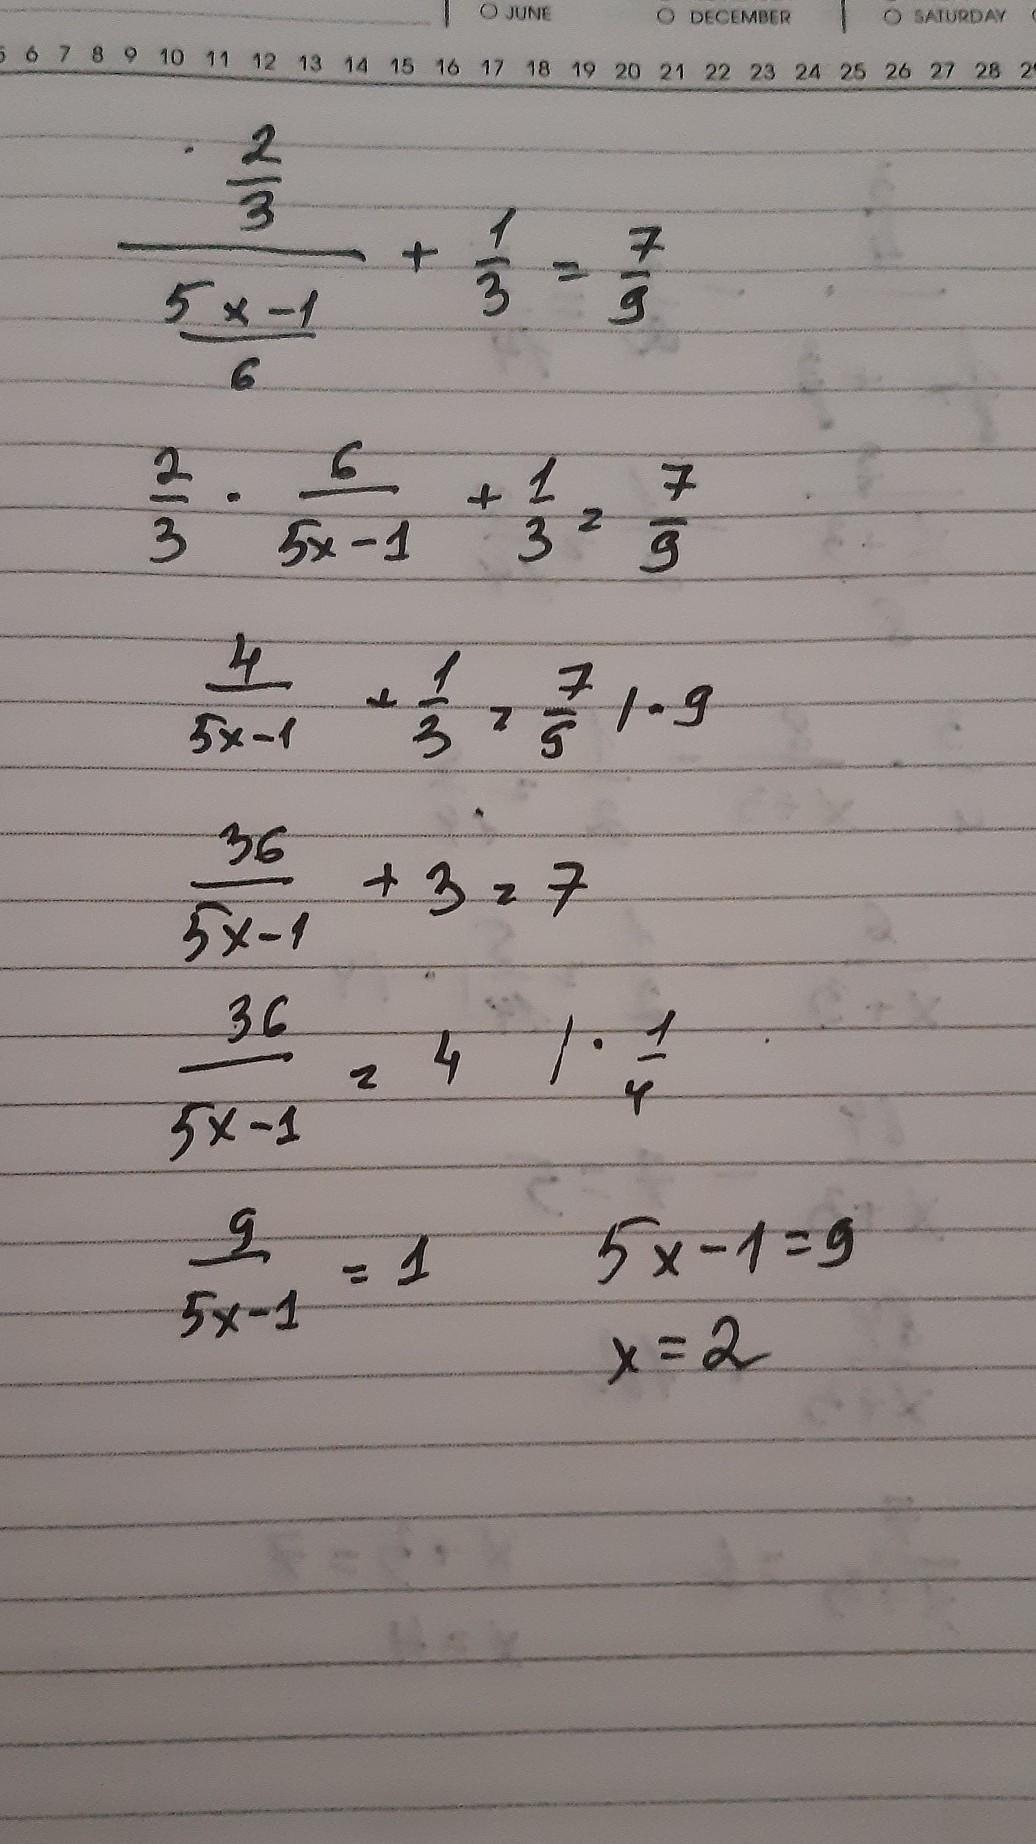 JUNE DECEMBER SATURDAY
6 7 8 9 10 11 12 13 14 15 16 17 18 19 20 21 22 23 24 25 26 27 28
(2/3)/((5x-1)/6) + 1/3 = 7/9
2/3 · 6/(5x-1) + 1/3 = 7/9
4/(5x-1) + 1/3 = 7/9 / · 9
36/(5x-1) + 3 = 7
36/(5x-1) = 4 / · 1/4
9/(5x-1) = 1 5x-1=9
x=2